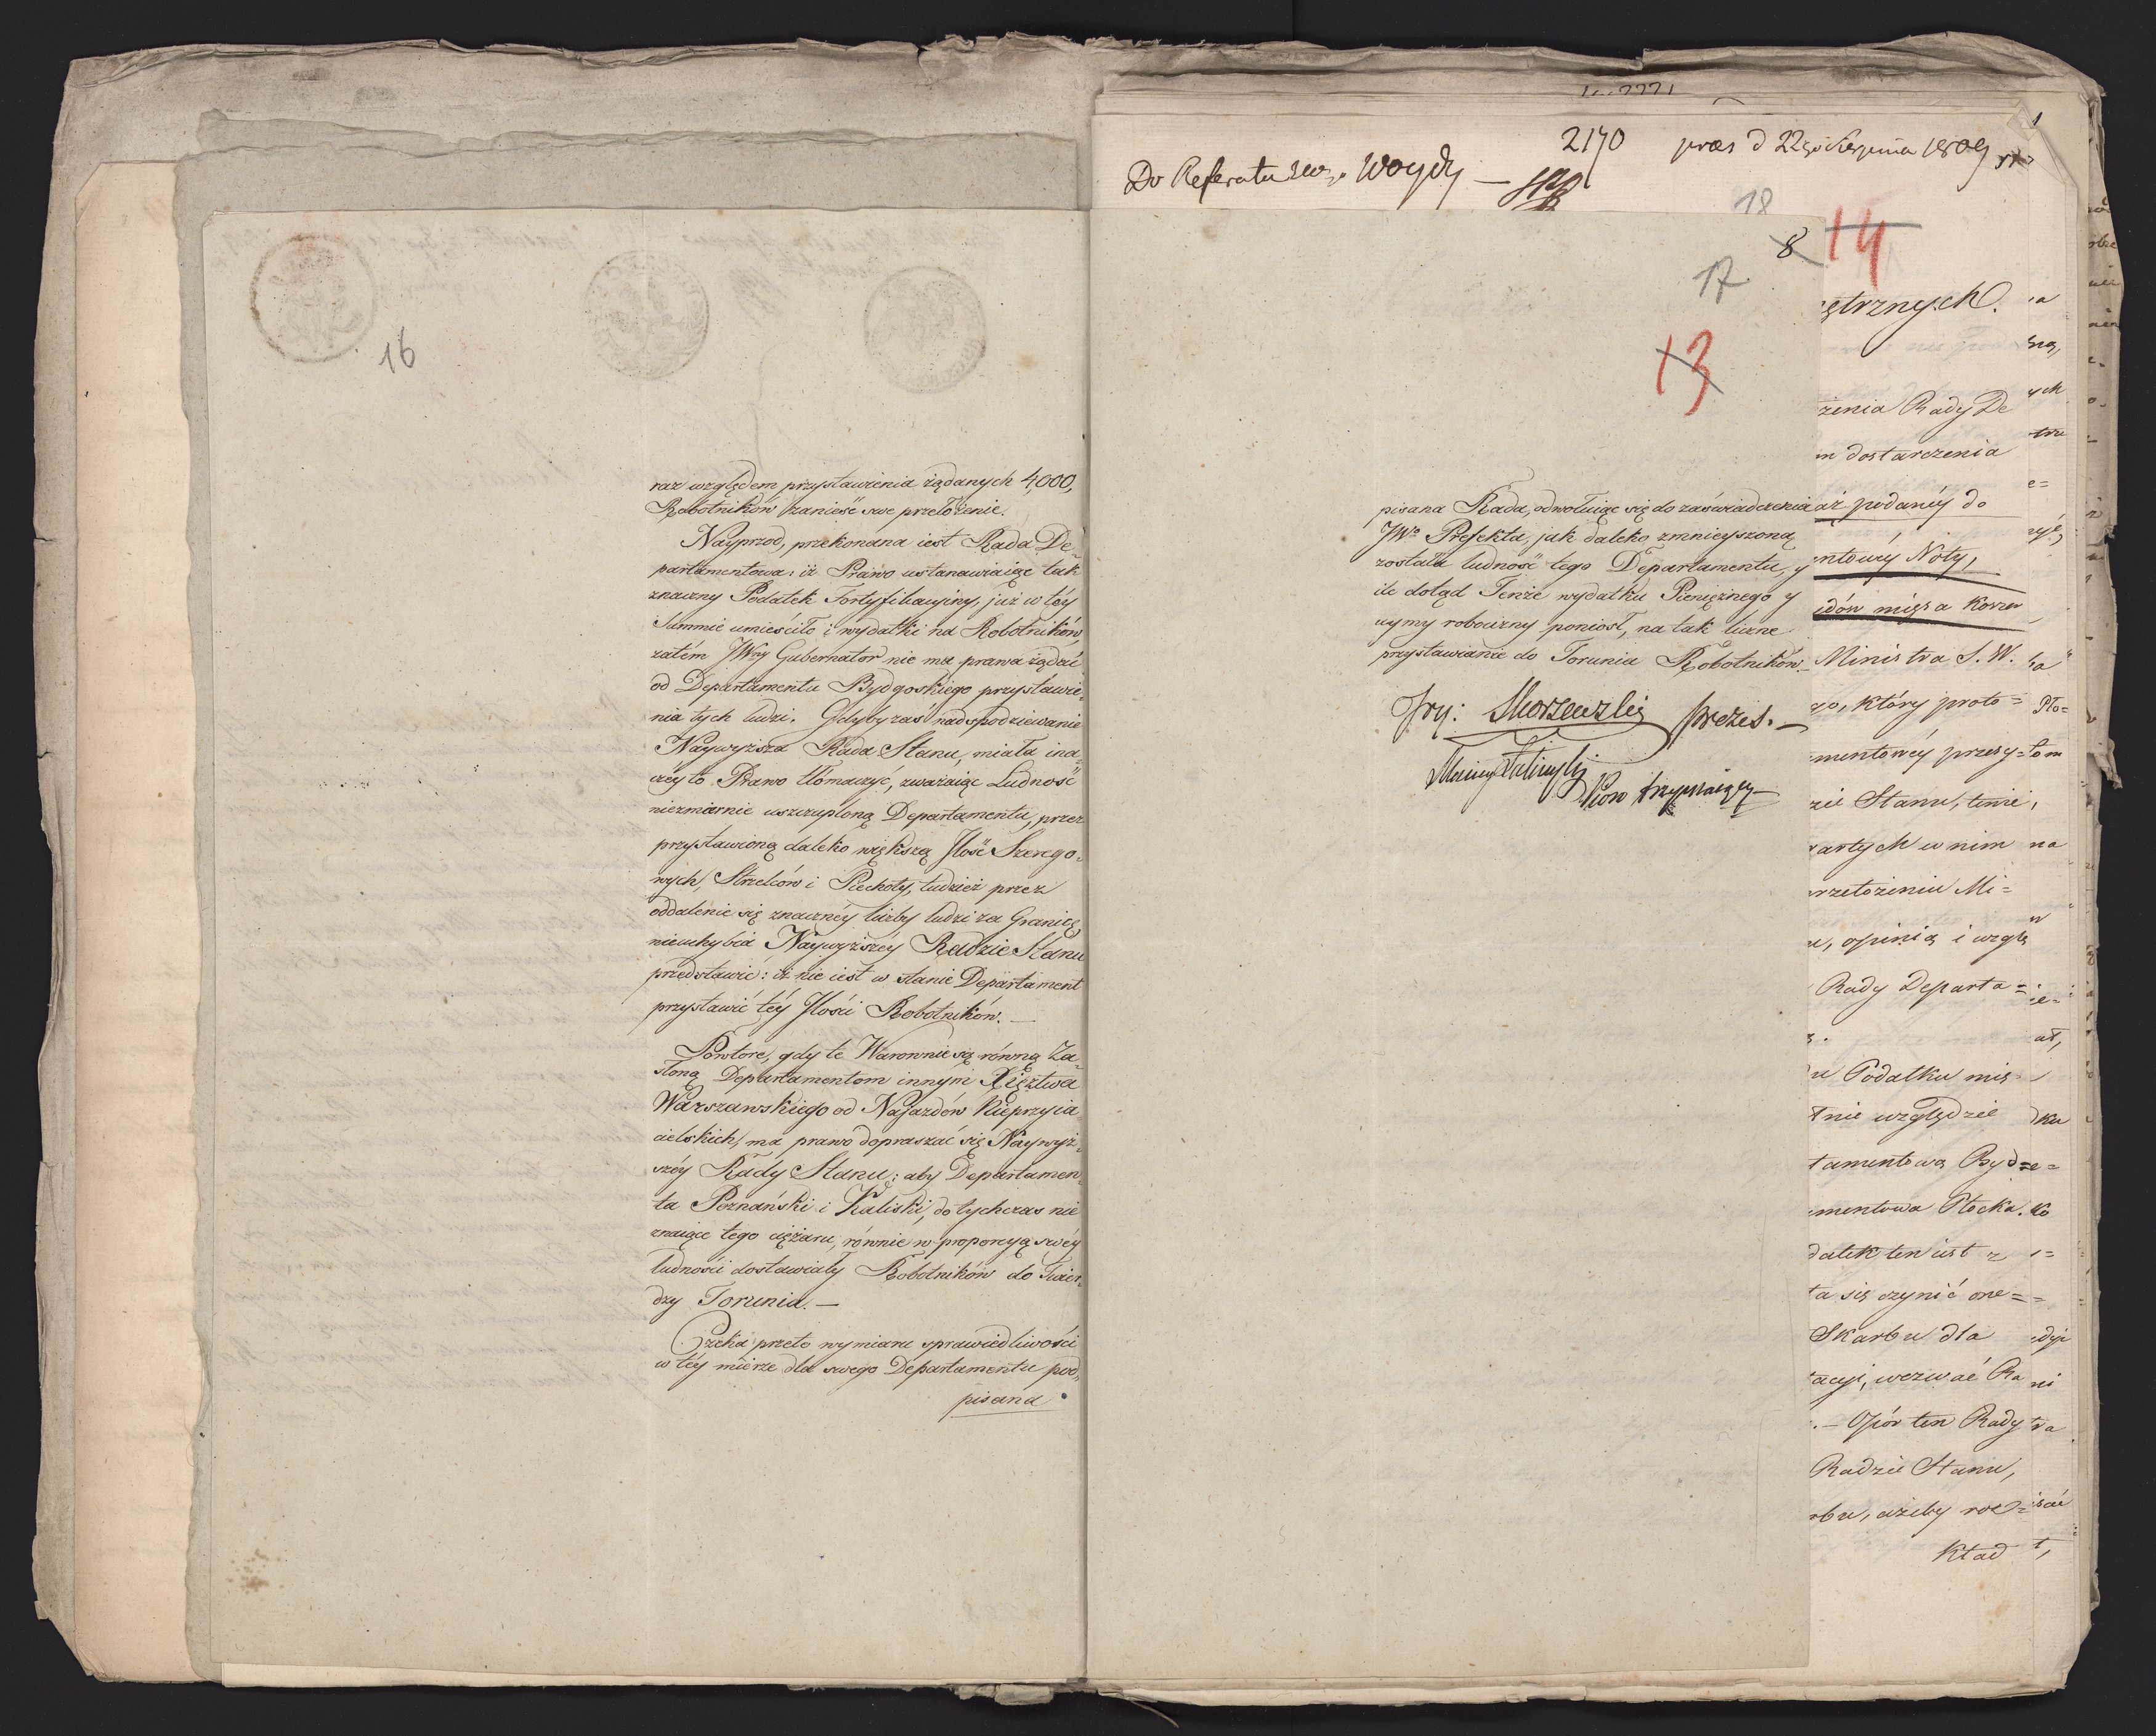 16
raz względem przystawienia żądanych 4,000,
Robotników zanieść swe przełożenie.
Nayprzod, przekonana iest Rada De-
partamentowa: iż Prawo ustanawiaiąc tak
znaczny Podatek Fortyfikacyiny, już w téy
Summie umieściło i wydatki na Robotników,
zatém JWny Gubernator nie ma prawa żądać
od Departamentu Bydgoskiego przystawie-
nia tych ludzi. Gdyby zaś nadspodziewanie
Naywyższa Rada Stanu, miała ina-
czey to Prawo tłomaczyć, zważaiąc Ludność
niezmiernie uszczuploną Departamentu, przez
przystawioną daleko większą Jlość Szerego-
wych, Strzelców i Piechoty, tudzież przez
oddalenie się znacznéy liczby ludzi za Granicę,
nieuchybia Naywyższéy Radzie Stanu
przedstawić: iż nie iest w stanie Departament
przystawić téy Jlości Robotników. —
Powtore, gdy te Warownie są równą Za-
słoną Departamentom innym Xięztwa
Warszawskiego od Najazdów Nieprzyia-
cielskich, ma prawo dopraszać się Naywyż-
széy Rady Stanu: aby Departamen-
ta Poznański i Kaliski, do tychczas nie
znaiące tego ciężaru, równie w proporcyą swéy
ludności dostawiały Robotników do Twier-
dzy Torunia. —
Czeka przeto wymiaru sprawiedliwości
w téy mierze dla swego Departamentu pod-
pisana
2170 præs d 22go Sierpnia 1809
Do Referatu JW. Woydy —
18
8 14
17
13
pisana Rada, odwołuiąc się do zaświadczenia
JWo Prefekta, jak daleko zmnieyszoną
została ludność tego Departamentu, y
ile dotąd Tenże wydatku Pieniężnego y
uymy robocizny poniosł, na tak liczne
przystawianie do Torunia Robotników.
Prezes. —
ętrznych.
żenia Rady De
m dostarczenia
aż podanéy do
ntowéy Noty,
idów mięsa Koszer
Ministra S. W.
go, który proto=
mentowéy przesy=
zie Stanu, tenże
artych w nim
rzełożeniu Mi=
u, opinią i wzglę
Rady Departa=
u Podatku mię
tnie względzie
tamentową Byd=
mentowa Płocka.
datek ten iest z
ta się czynić one=
Skarbu dla
acyi, wezwać Ra
. — Opór ten Rady
Radzie Stanu,
rbu, ażeby roz=
Kład